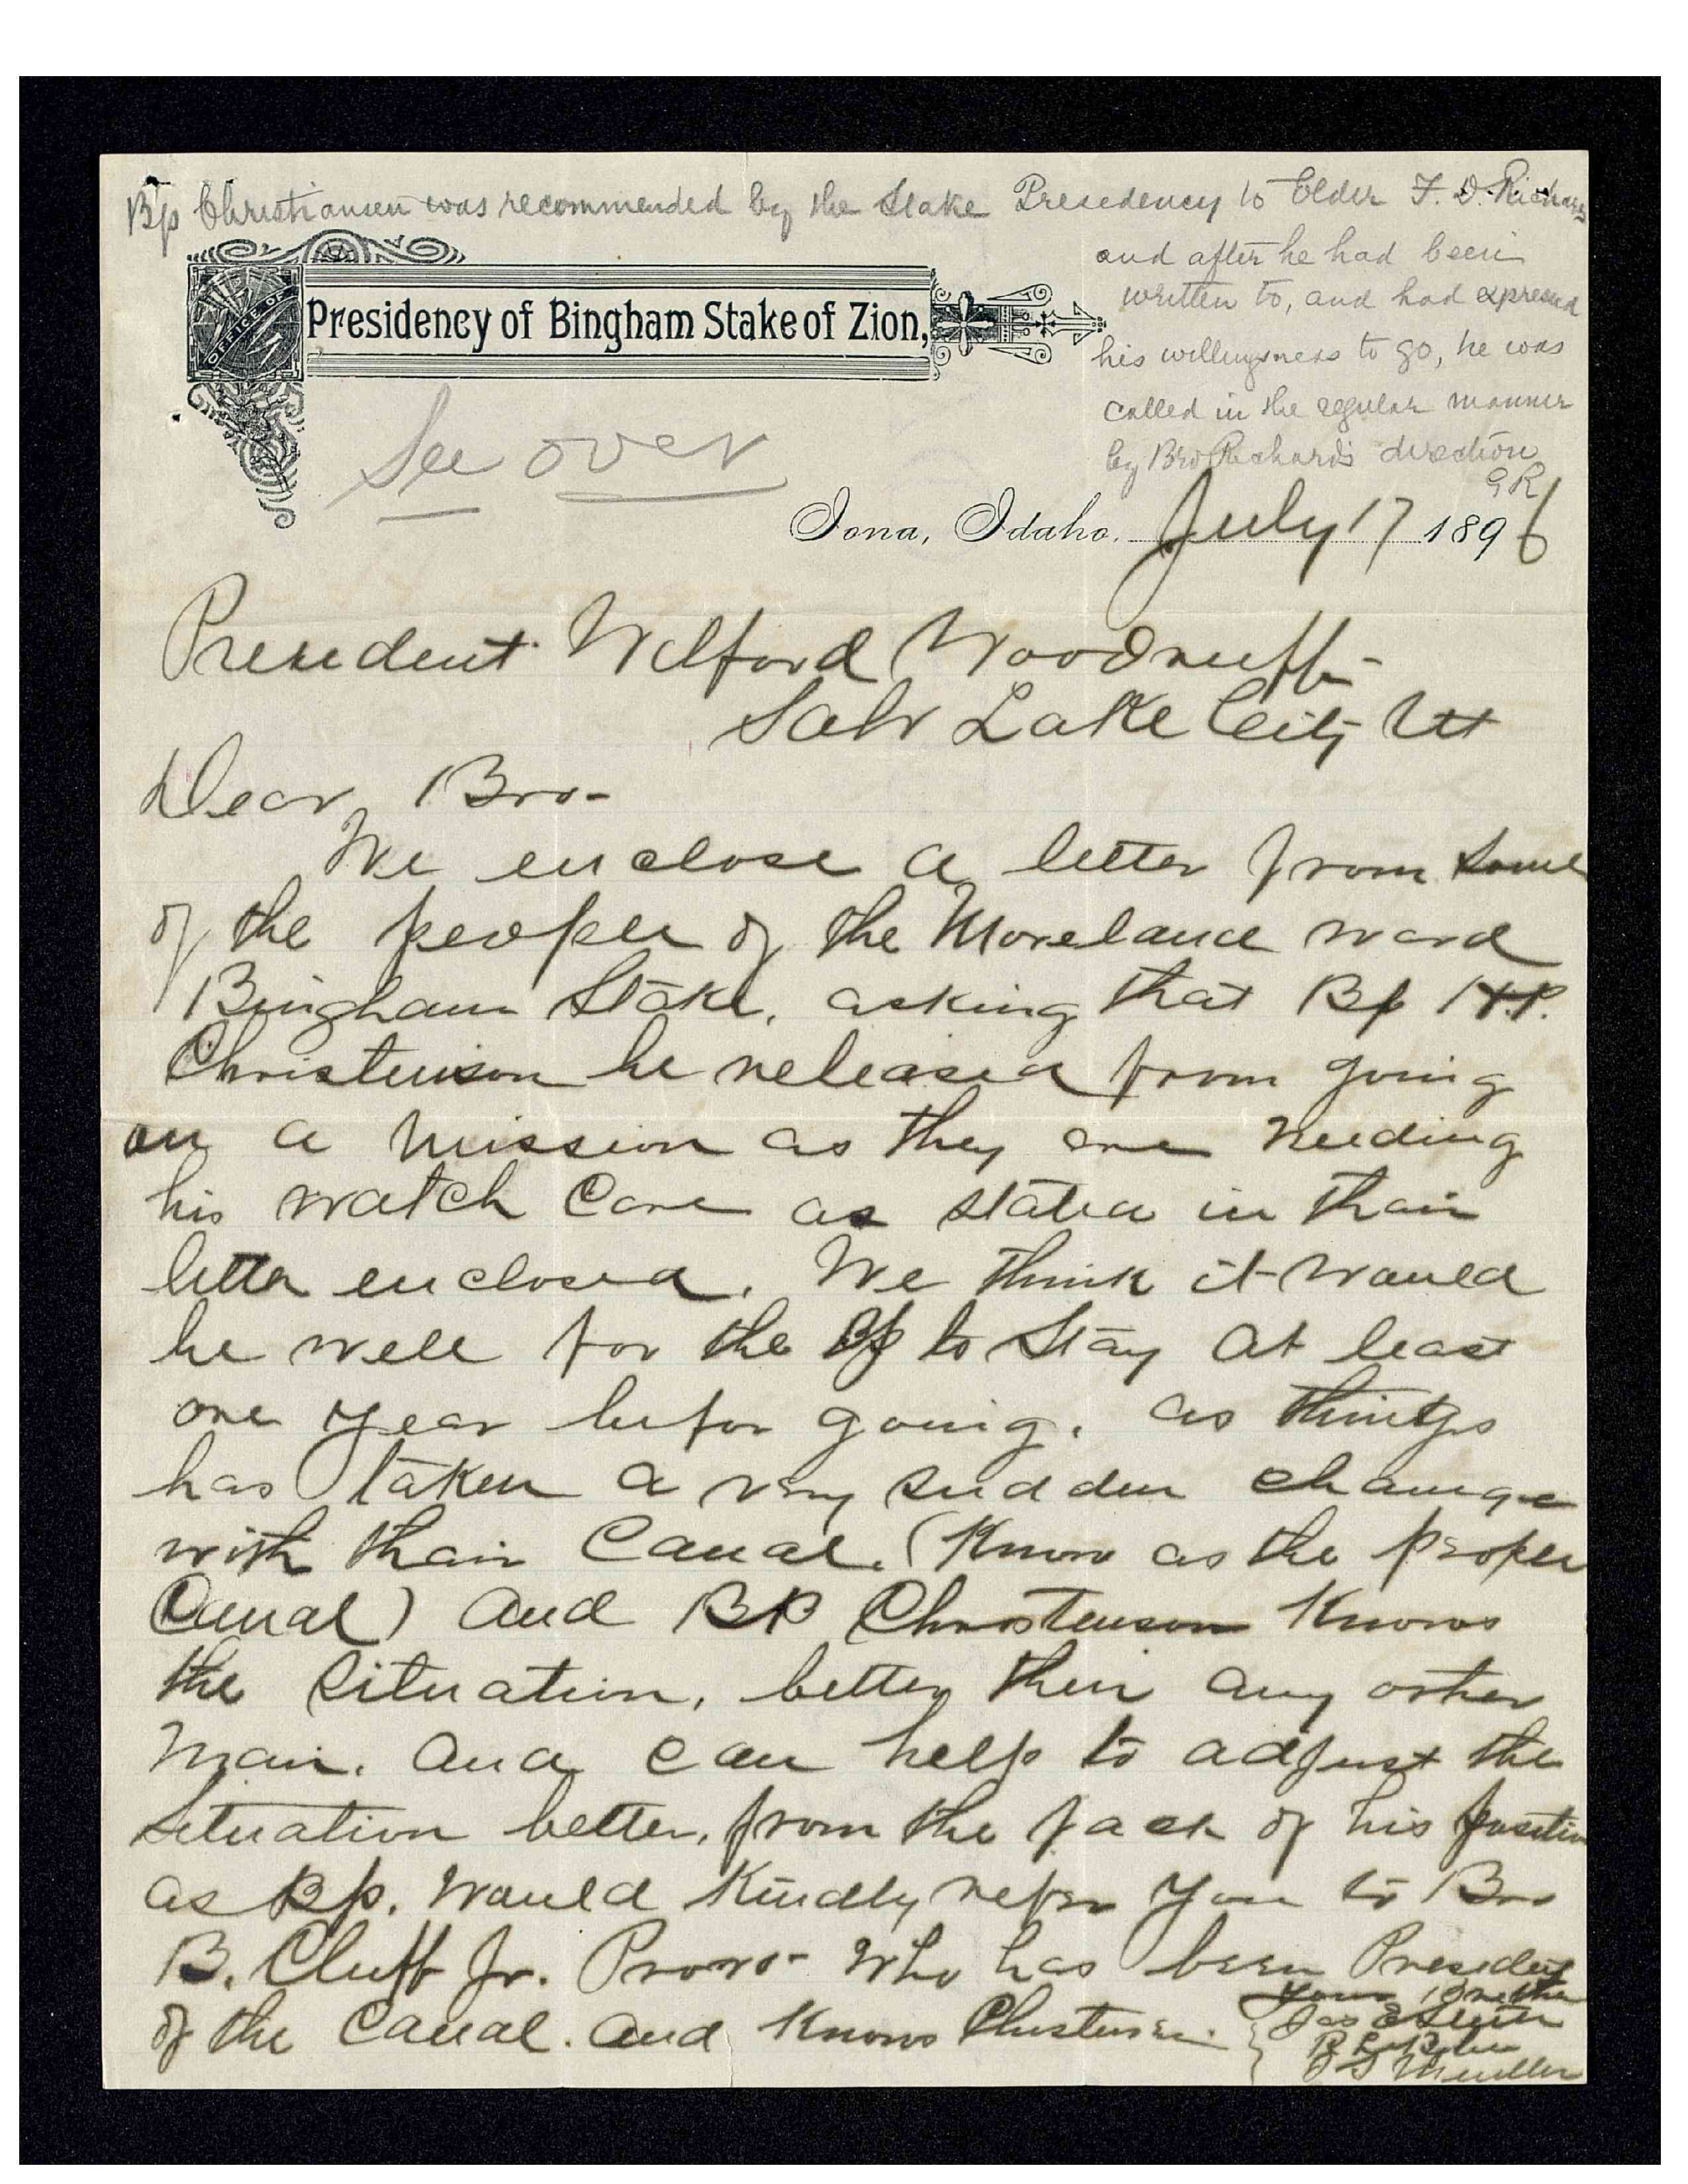 Bp Christiansen was recommended by the Stake Presedency to Elder F. D. Richards
and after he had been
written to, and had expressed
his willingness to go, he was
called in the regular manner
by Bro Richards direction
GR
OFFICE OF
Presidency of Bingham Stake of Zion,
See over
Iona, Idaho. July 17 1896
Presedent Wilford Woodruff-
Salt Lake City Ut
Dear Bro-
We enclose a letter from some
of the people of the Moreland ward
Bingham Stake, asking that Bp H.P.
Christenson be released from going
on a mission as they are needing
his watch Care as stated in thair
letter enclosed. We think it would
be well for the Bp to Stay at least
one year befor going, as things
has taken a very sudden change
with thair Canal. (Know as the Peoples
Canal) and BP Christenson Knows
the Situation, better then any other
Man. and can help to adjust the
Situation better, from the fack of his position
as Bp. Would Kindly refer you to Bro
B. Cluff Jr. Provo- Who has been President
of the Canal. and Knows Christensen.
Your Brethren
Jas E Steele
R L Bybee
J S Mueller